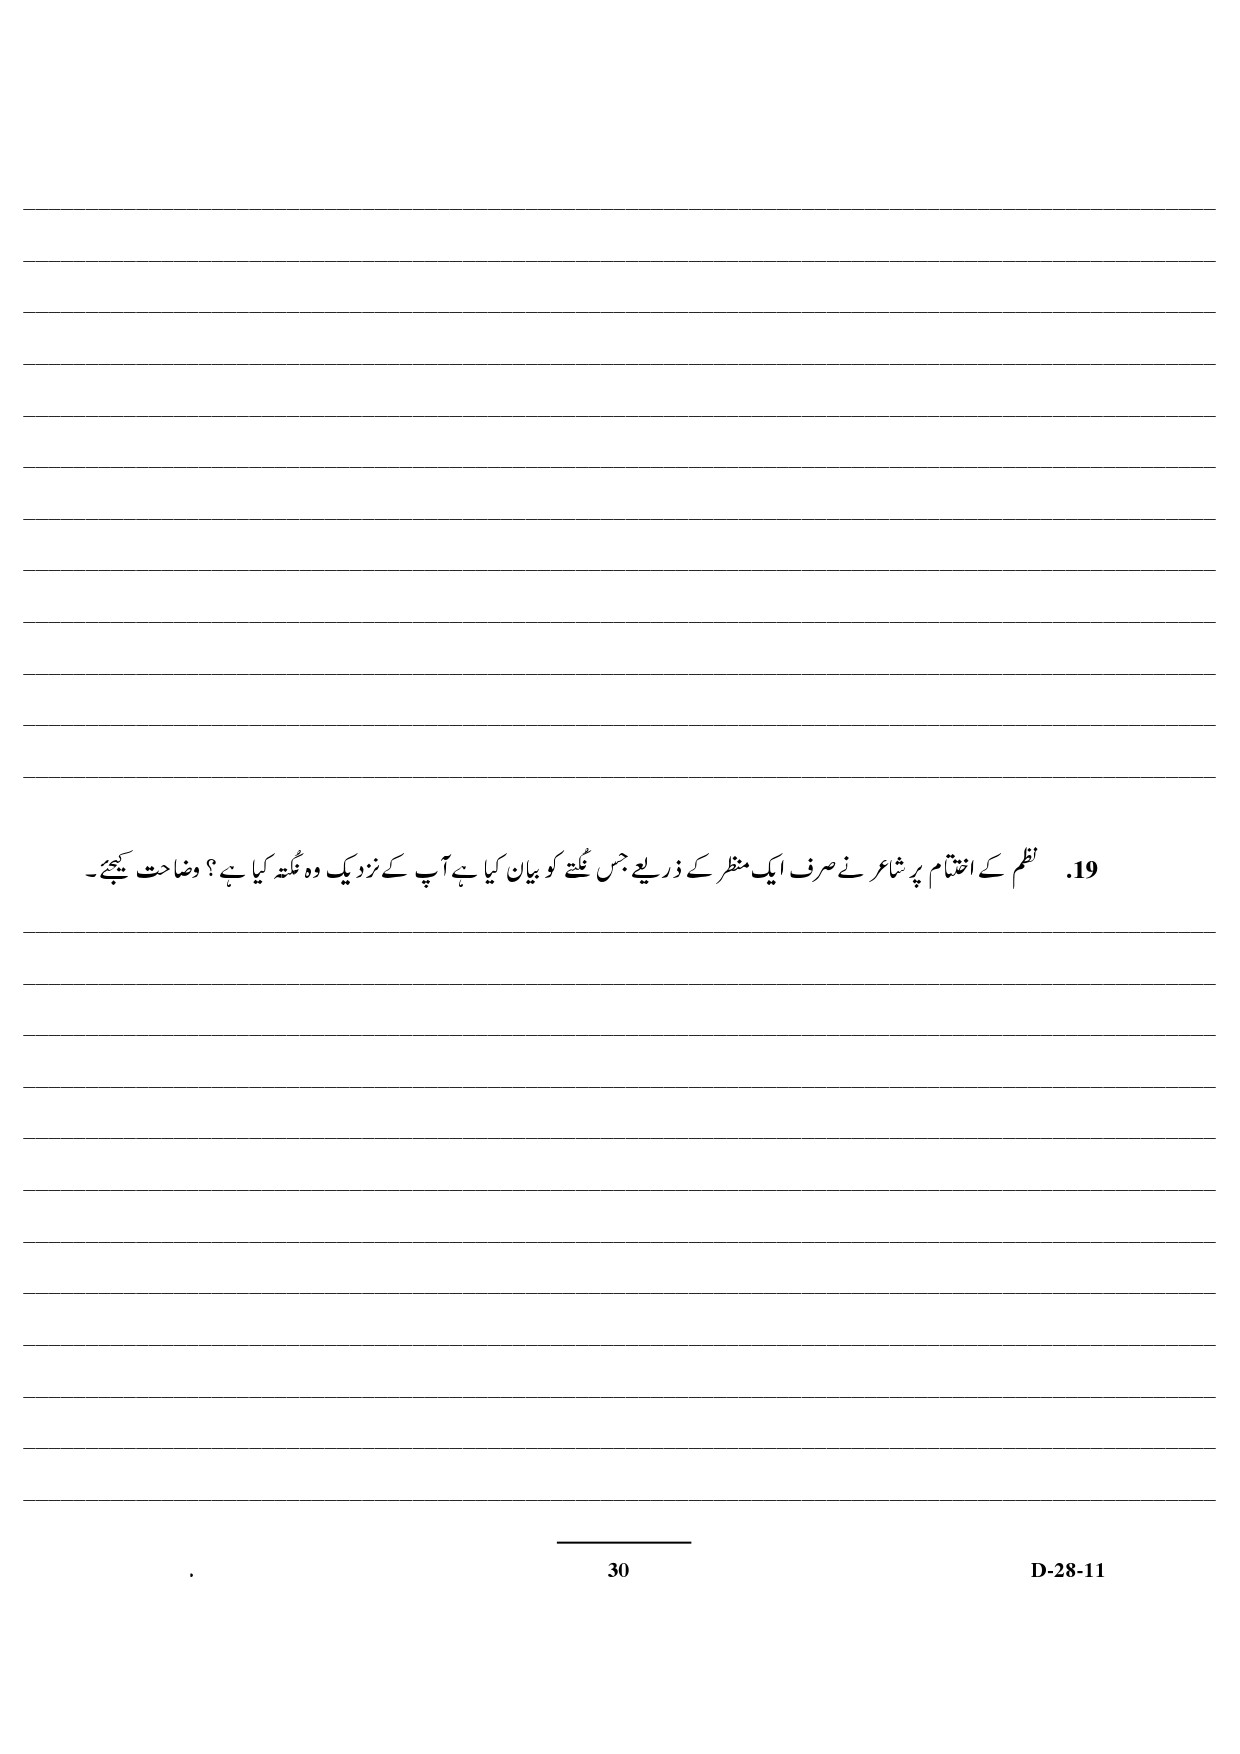 19. نظم کے اختتام پر شاعر نے صرف ایک منظر کے ذریعے جس نُکتے کو بیان کیا ہے آپ کے نزدیک وہ نُکتہ کیا ہے؟ وضاحت کیجئے۔
. 30 D-28-11